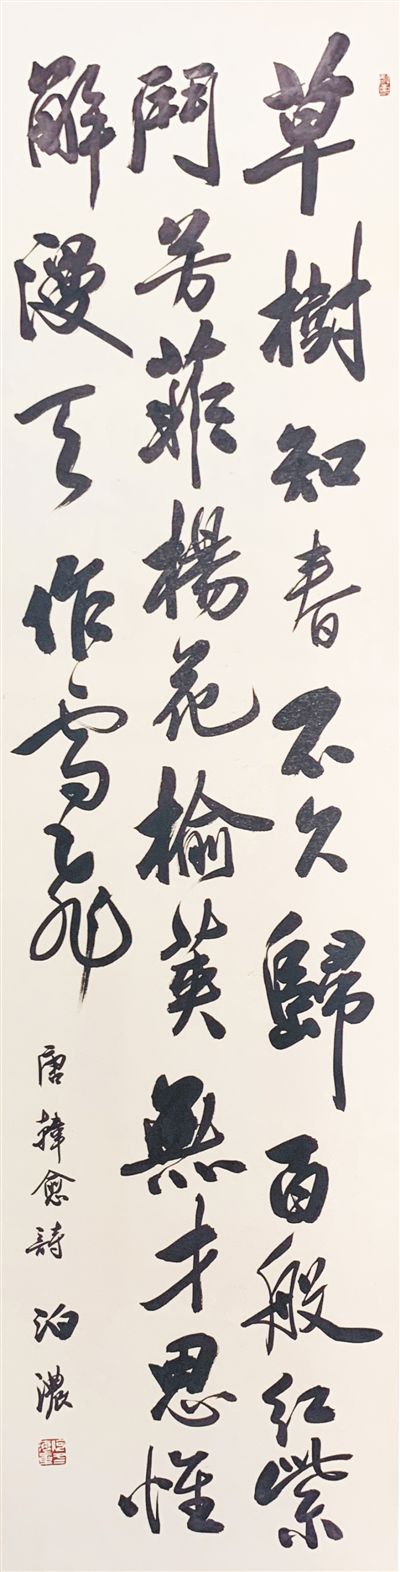 草樹知春不久歸百般紅紫
鬥芳菲楊花榆莢無才思惟
解漫天作雪飛
唐韓愈詩 泊濃